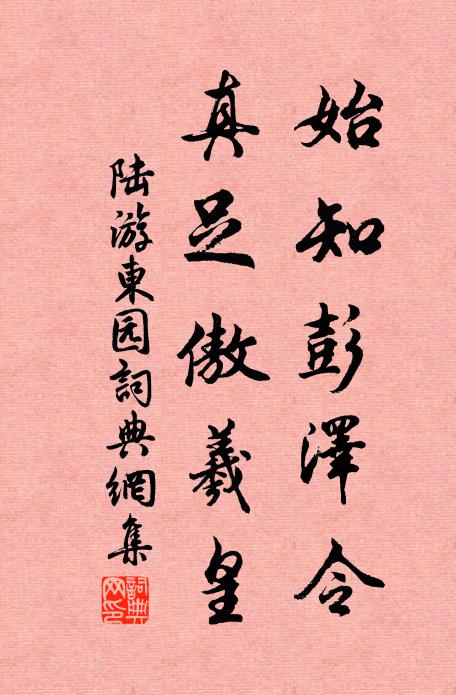 始知彭澤令
真足傲羲皇
陆游東园詞典網集
詞典網印